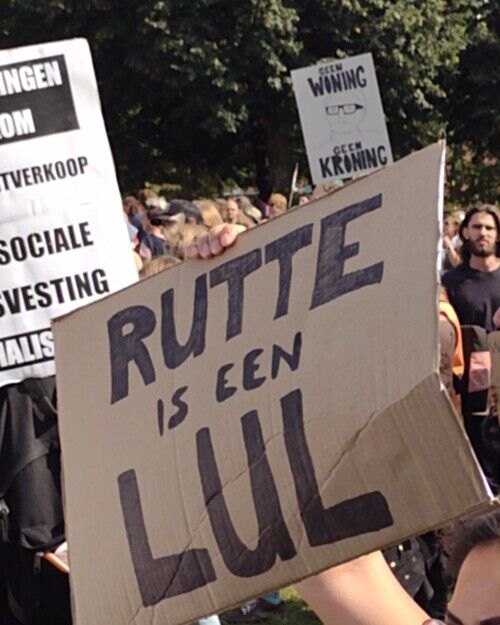 INGEN
OM
TVERKOOP
SOCIALE
SVESTING
IALIS
GEEN
WONING
GEEN
KRONING
RUTTE
IS EEN
LUL